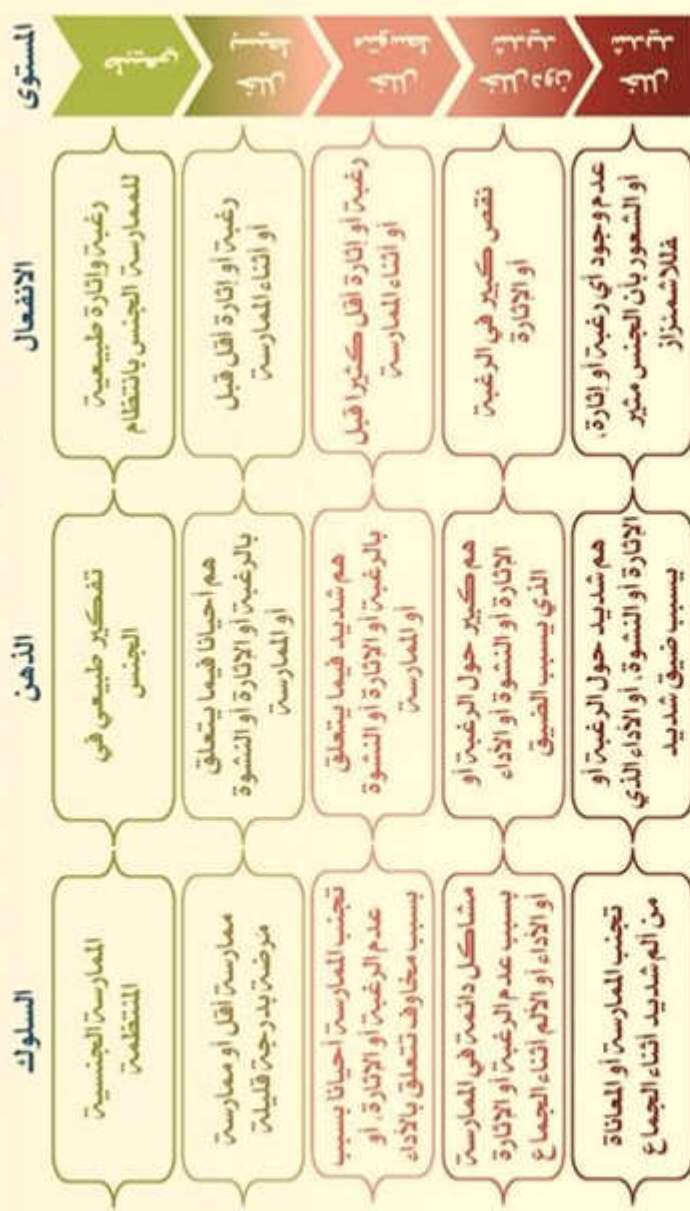 المستوى
الانفعال
الذهن
السلوك
طبيعي
رغبة وإثارة طبيعية
للممارسة الجنس بانتظام
تفكير طبيعي في
الجنس
الممارسة الجنسية
المنتظمة
خلل
بسيط
رغبة أو إثارة أقل قبل
أو أثناء الممارسة
هم أحيانا فيما يتعلق
بالرغبة أو الإثارة أو النشوة
أو الممارسة
ممارسة أقل أو ممارسة
مرضة بدرجة قليلة
خلل
متوسط
رغبة أو إثارة أقل كثيرا قبل
أو أثناء الممارسة
هم شديد فيما يتعلق
بالرغبة أو الإثارة أو النشوة
أو الممارسة
تجنب الممارسة أحيانا بسبب
عدم الرغبة أو الإثارة، أو
بسبب مخاوف تتعلق بالأداء
خلل دون
شديد
نقص كبير في الرغبة
أو الإثارة
هم كبير حول الرغبة أو
الإثارة أو النشوة أو الأداء
الذي يسبب الضيق
مشاكل دائمة في الممارسة
بسبب عدم الرغبة أو الإثارة
أو الأداء أو الألم أثناء الجماع
خلل
شديد
عدم وجود أي رغبة أو إثارة،
أو الشعور بأن الجنس مثير
فللاشمنزاز
هم شديد حول الرغبة أو
الإثارة أو النشوة، أو الأداء الذي
يسبب ضيق شديد
تجنب الممارسة أو المعاناة
من ألم شديد أثناء الجماع